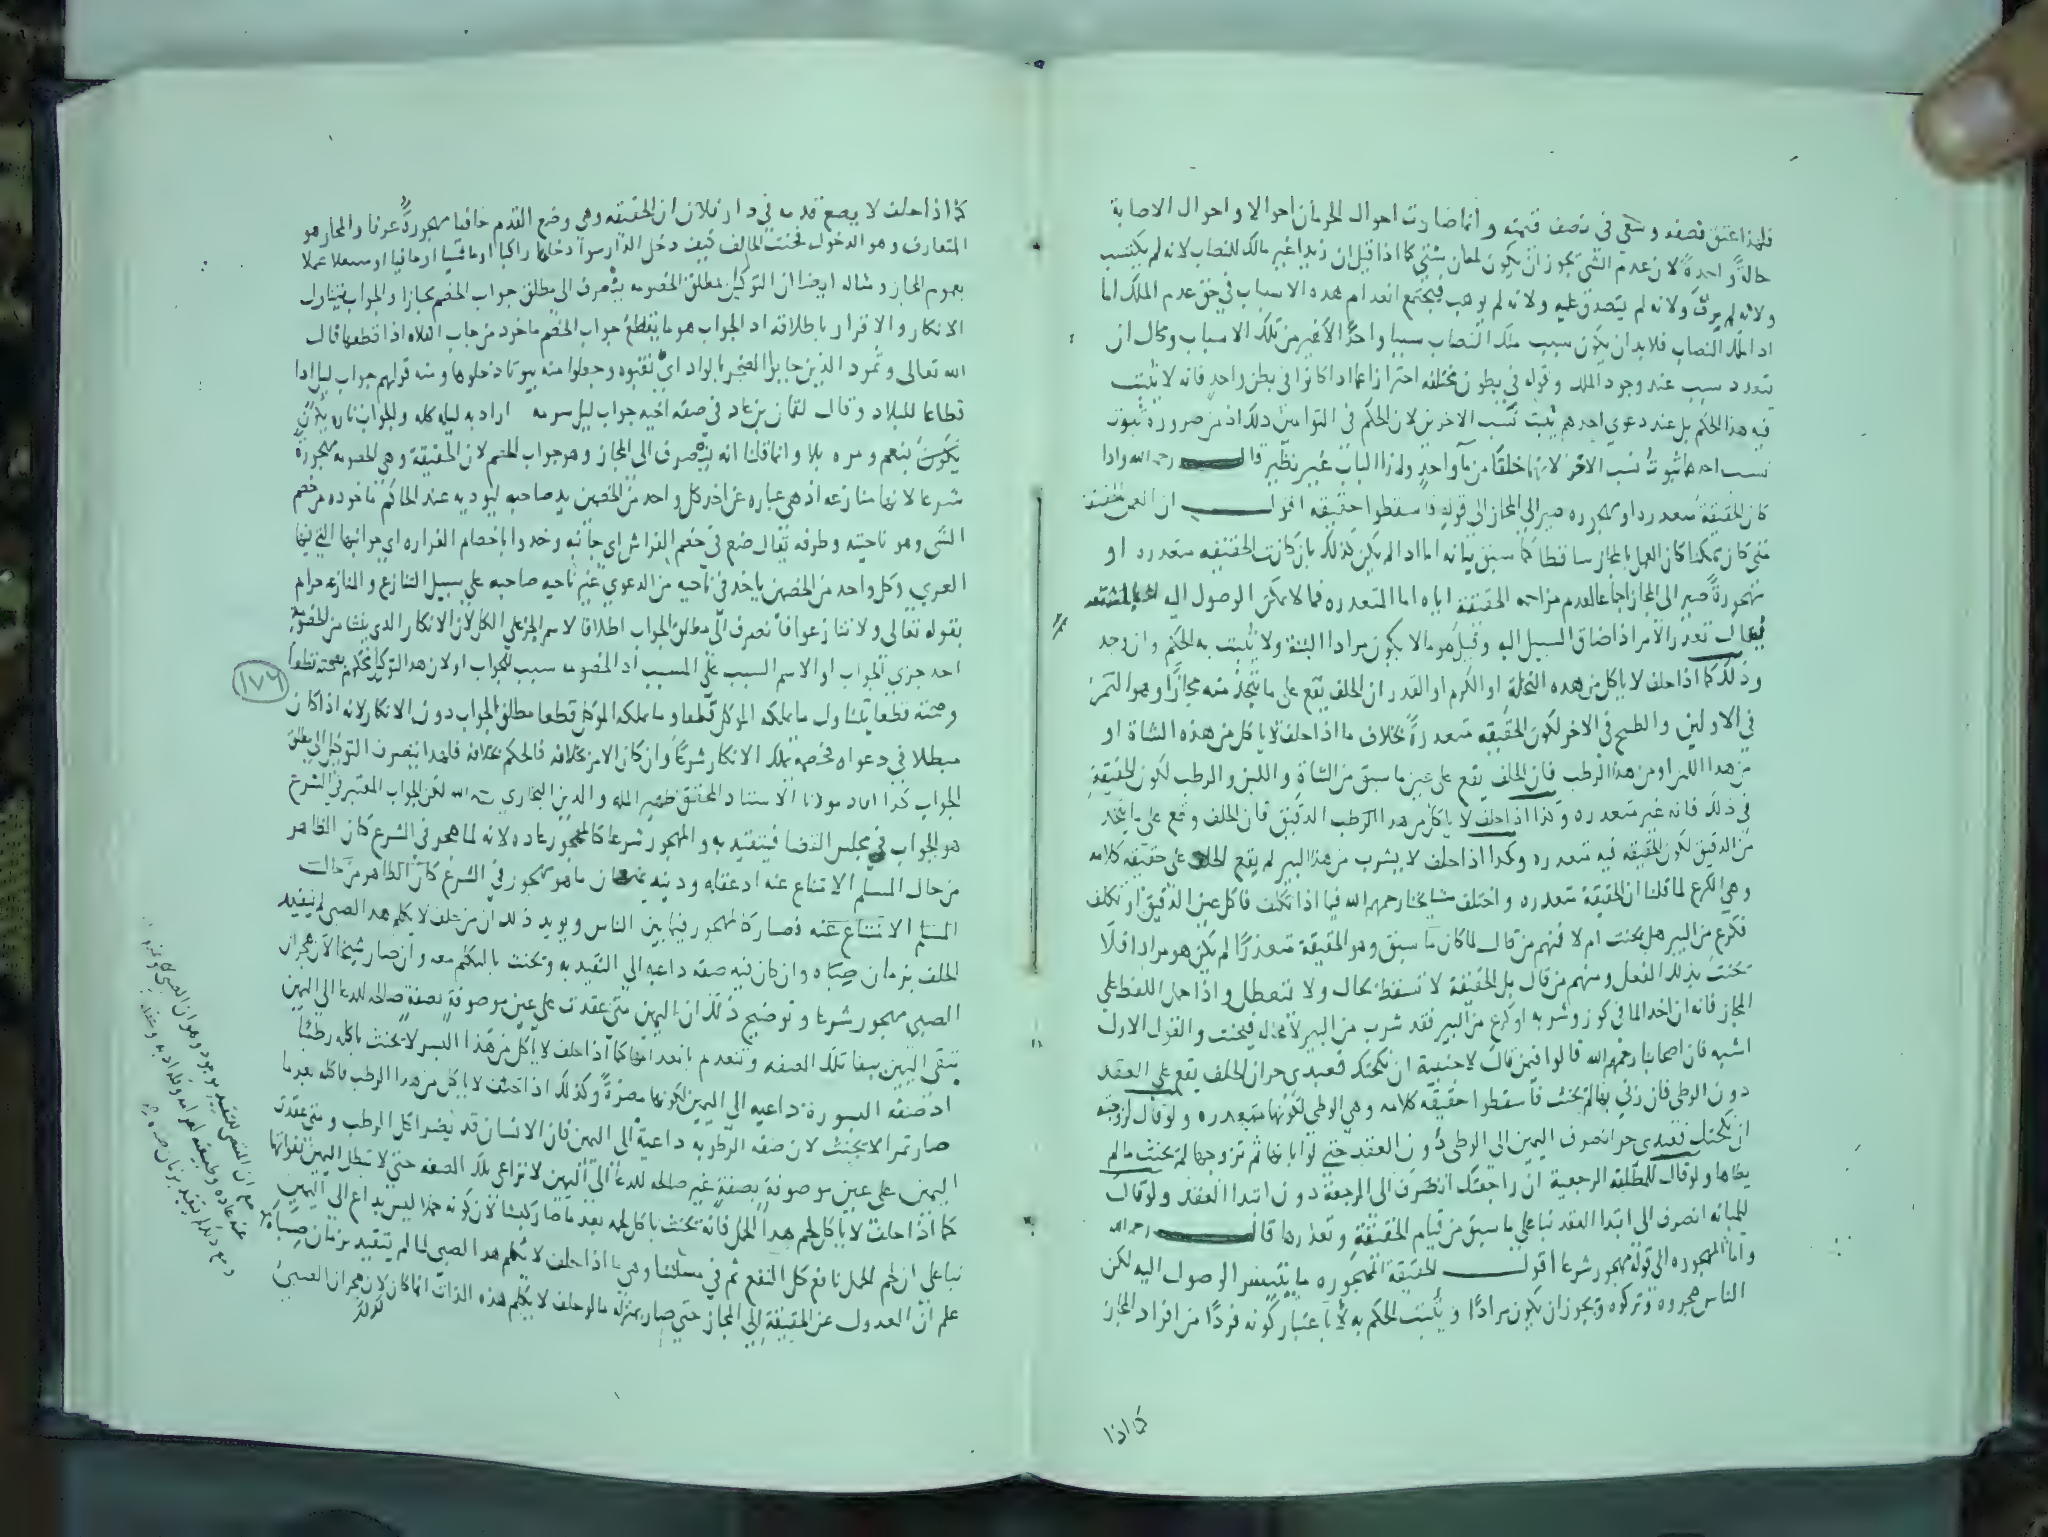 فلهذا عتق نصفه وسعى فى نصف قيمته وانما صارت احوال الحرمان احوالا واحوال الاصابة
حالةً واحدةً لان عدم الشئ يجوز ان يكون لمعان شتى كما اذا قيل ان زيدا غير مالك للنصاب لانه لم يكتسب
ولانه لم يرث ولانه لم يتصدق عليه ولانه لم يوهب فيجتمع انعدام هذه الاسباب فى حق عدم الملك اما
اذا ملك النصاب فلا بد ان يكون سبب ملك النصاب سببا واحدًا لا غير من تلك الاسباب ومحال ان
يتعدد سبب عند وجود الملك وقوله فى بطون مختلفة احترازا عما اذا كانوا فى بطن واحد فانه لا يثبت
فيه هذا الحكم بل عند دعوى احدهم يثبت نسب الاخرين لان الحكم فى التوامين ذلك اذ من ضرورة ثبوت
نسب احدهما ثبوت نسب الاخر لانهما خلقا من ماء واحد ولهذا الباب غير نظير قال رحمه الله واذا
كان الحقيقة متعذره او مهجوره صير الى المجاز الى قوله فاسقطوا حقيقه اقول ان العمل بالحقيقة
متى كان ممكنا كان العمل بالمجاز ساقطا كما سبق بيانه اما اذا لم يكن كذلك بان كانت الحقيقه متعذره او
مهجورةً صير الى المجاز اجماعا لعدم مزاحمة الحقيقة اياه اما المتعذره فما لا يمكن الوصول اليه الا بالمشقة
يقال تعذر الامر اذا ضاق السبيل اليه وقيل هو ما لا يكون مرادا البتة ولا يثبت به الحكم وان وجد
وذلك كما اذا حلف لا ياكل من هذه النخلة او الكرم او القدر ان الحلف يقع على ما يتخذ منه مجازًا وهو الثمر
فى الاولين والطبخ فى الاخر لكون الحقيقه متعذرةً بخلاف ما اذا حلف لا ياكل من هذه الشاة او
من هذا اللبن او من هذا الرطب فان الحلف يقع على عين ما سبق من الشاة واللبن والرطب لكون الحقيقة
فى ذلك فانه غير متعذره وكذا اذا حلف لا ياكل من هذا الرطب الدقيق فان الحلف وقع على ما يتخذ
من الدقيق لكون الحقيقه فيه متعذره وكذا اذا حلف لا يشرب من هذا البير لم يقع الحلف على حقيقه كلامه
وهى الكرع لما قلنا ان الحقيقة متعذره واختلف مشايخنا رحمهم الله فيما اذا تكلف فاكل عين الدقيق او تكلف
فكرع من البير هل يحنث ام لا فمنهم من قال لما كان ما سبق وهو الحقيقة متعذرًا لم يكن هو مرادا فلا
يحنث بذلك الفعل ومنهم من قال بل الحقيقة لا تسقط بحال ولا تتعطل واذا حمل اللفظ على
المجاز فانه ان اخذ الما فى كوز وشربه او كرع من البير فقد شرب من البير لا محاله فيحنث والقول الاول
اشبه فان اصحابنا رحمهم الله قالوا فيمن قال لاجنبية ان نكحتك فعبدى حر ان الحلف يقع على العقد
دون الوطى فان زنى بها لم يحنث فاسقطوا حقيقه كلامه وهى الوطى لكونها متعذره ولو قال لزوجته
ان نكحتك فعبدى حر انصرف اليمين الى الوطى دون العقد حتى لو ابانها ثم تزوجها لم يحنث ما لم
يطاها ولو قال للمطلقة الرجعية ان راجعتك انصرف الى الرجعة دون ابتدا العقد ولو قال
للمبانه انصرف الى ابتدا العقد بنا على ما سبق من قيام الحقيقة وتعذرها قال رحمه الله
واما المهجوره الى قوله مهجور شرعا اقول الحقيقة المهجوره ما يتيسر الوصول اليه لكن
الناس هجروه وتركوه ويجوز ان يكون مرادًا ويثبت الحكم به لا باعتبار كونه فردًا من افراد المجاز
كما اذا
كما اذا حلف لا يضع قدمه فى دار فلان ان الحقيقه وهى وضع القدم حافيا مهجورةً عرفا والمجاز هو
المتعارف وهو الدخول فحنث الحالف كيف دخل الدار سوآ دخلها راكبا او ماشيا او حافيا او متنعلا عملا
بعموم المجاز ومثاله ايضا ان التوكيل بمطلق الخصومه ينصرف الى مطلق جواب الخصم مجازا والجواب يتناول
الانكار والاقرار باطلاقه اذ الجواب هو ما ينقطع جواب الخصم ماخوذ من جاب الفلاه اذا قطعها قال
الله تعالى وثمود الذين جابوا الصخر بالواد اى نقبوه وجعلوا منه بيوتا دخلوها ومنه قولهم جواب ليل اذا
قطاعا للبلاد وقال لقمان بن عاد فى صفه اخيه جواب ليل سرمد اراد به ليله كله والجواب تاره يكون
يكون بنعم ومره بلا وانما قلنا انه ينصرف الى المجاز وهو جواب الخصم لان الحقيقة وهى الخصومه مهجورة
شرعا لانها منازعه اذ هى عباره عن اخذ كل واحد من الخصمين يد صاحبه ليوديه عند الحاكم ماخوذه من خصم
الشى وهو ناحيته وطرفه يقال ضع فى خصم الفراش اى جانبه وخذوا باخصام الغراره اى جوانبها التى فيها
العرى وكل واحد من الخصمين ياخذ فى ناحيه من الدعوى غير ناحيه صاحبه على سبيل التنازع والتنازع حرام
بقوله تعالى ولا تنازعوا فانصرف الى مطلق الجواب اطلاقا لاسم الجز على الكل لان الانكار الذى ينشا من الخصومة
احد جزءى الجواب او لاسم السبب على المسبب اذ الخصومه سبب للجواب او لان هذا التوكيل محكوم بصحته قطعا
١٧٦
وصحته قطعا بتناول ما يملكه الموكل قطعا وما يملكه الموكل قطعا مطلق الجواب دون الانكار لانه اذا كان
مبطلا فى دعواه مخصمه يملك الانكار شرعا وان كان الامر بخلافه فالحكم بخلافه فلهذا ينصرف التوكيل الى مطلق
الجواب كذا افاد مولانا الاستاد المحقق ظهير المله والدين البخارى رحمه الله لكن الجواب المعتبر فى الشرع
هو الجواب فى مجلس القضا فيتقيد به والمهجور شرعا كالمهجور عاده لانه لما هجر فى الشرع كان الظاهر
من حال المسلم الامتناع عنه اذ عقله ودينه يمنعان ما هو مهجور فى الشرع كان الظاهر من حال
المسلم الامتناع عنه فصار كالمهجور فيما بين الناس ويويد ذلك ان من حلف لا يكلم هذا الصبى لم يتقيد
الحلف بزمان صباه وان كان فيه صفه داعيه الى التقيد به ويحنث بالتكلم معه وان صار شيخا لان هجران
الصبى مهجور شرعا وتوضيح ذلك ان اليمين متى عقدت على عين موصوفة بصفة صالحه للدعا الى اليمين
تبقى اليمين ببقا تلك الصفه وتنعدم بانعدامها كما اذا حلف لا ياكل من هذا البسر لا يحنث باكله رطبا
اذ صفه البسورة داعيه الى اليمين لكونها مضرةً وكذلك اذا حلف لا ياكل من هذا الرطب فاكله بعد ما
صار تمرا لا يحنث لان صفه الرطوبه داعية الى اليمين فان الانسان قد يضر اكل الرطب ومتى عقدت
اليمين على عين موصوفة بصفة غير صالحه للدعا الى اليمين لا تراعى تلك الصفه حتى لا تبطل اليمين بفواتها
كما اذا حلف لا ياكل لحم هذا الحمل فانه يحنث باكل لحمه بعد ما صار كبشا لان كونه حملا ليس بداع الى اليمين
بنا على ان لحم الحمل نافع كل النفع ثم فى مسئلتنا وهى ما اذا حلف لا يكلم هذا الصبى لما لم يتقيد بزمان صباه
علم ان العدول عن الحقيقة الى المجاز حتى صار بمنزله ما لو حلف لا يكلم هذه الذات انما كان لان هجران الصبى